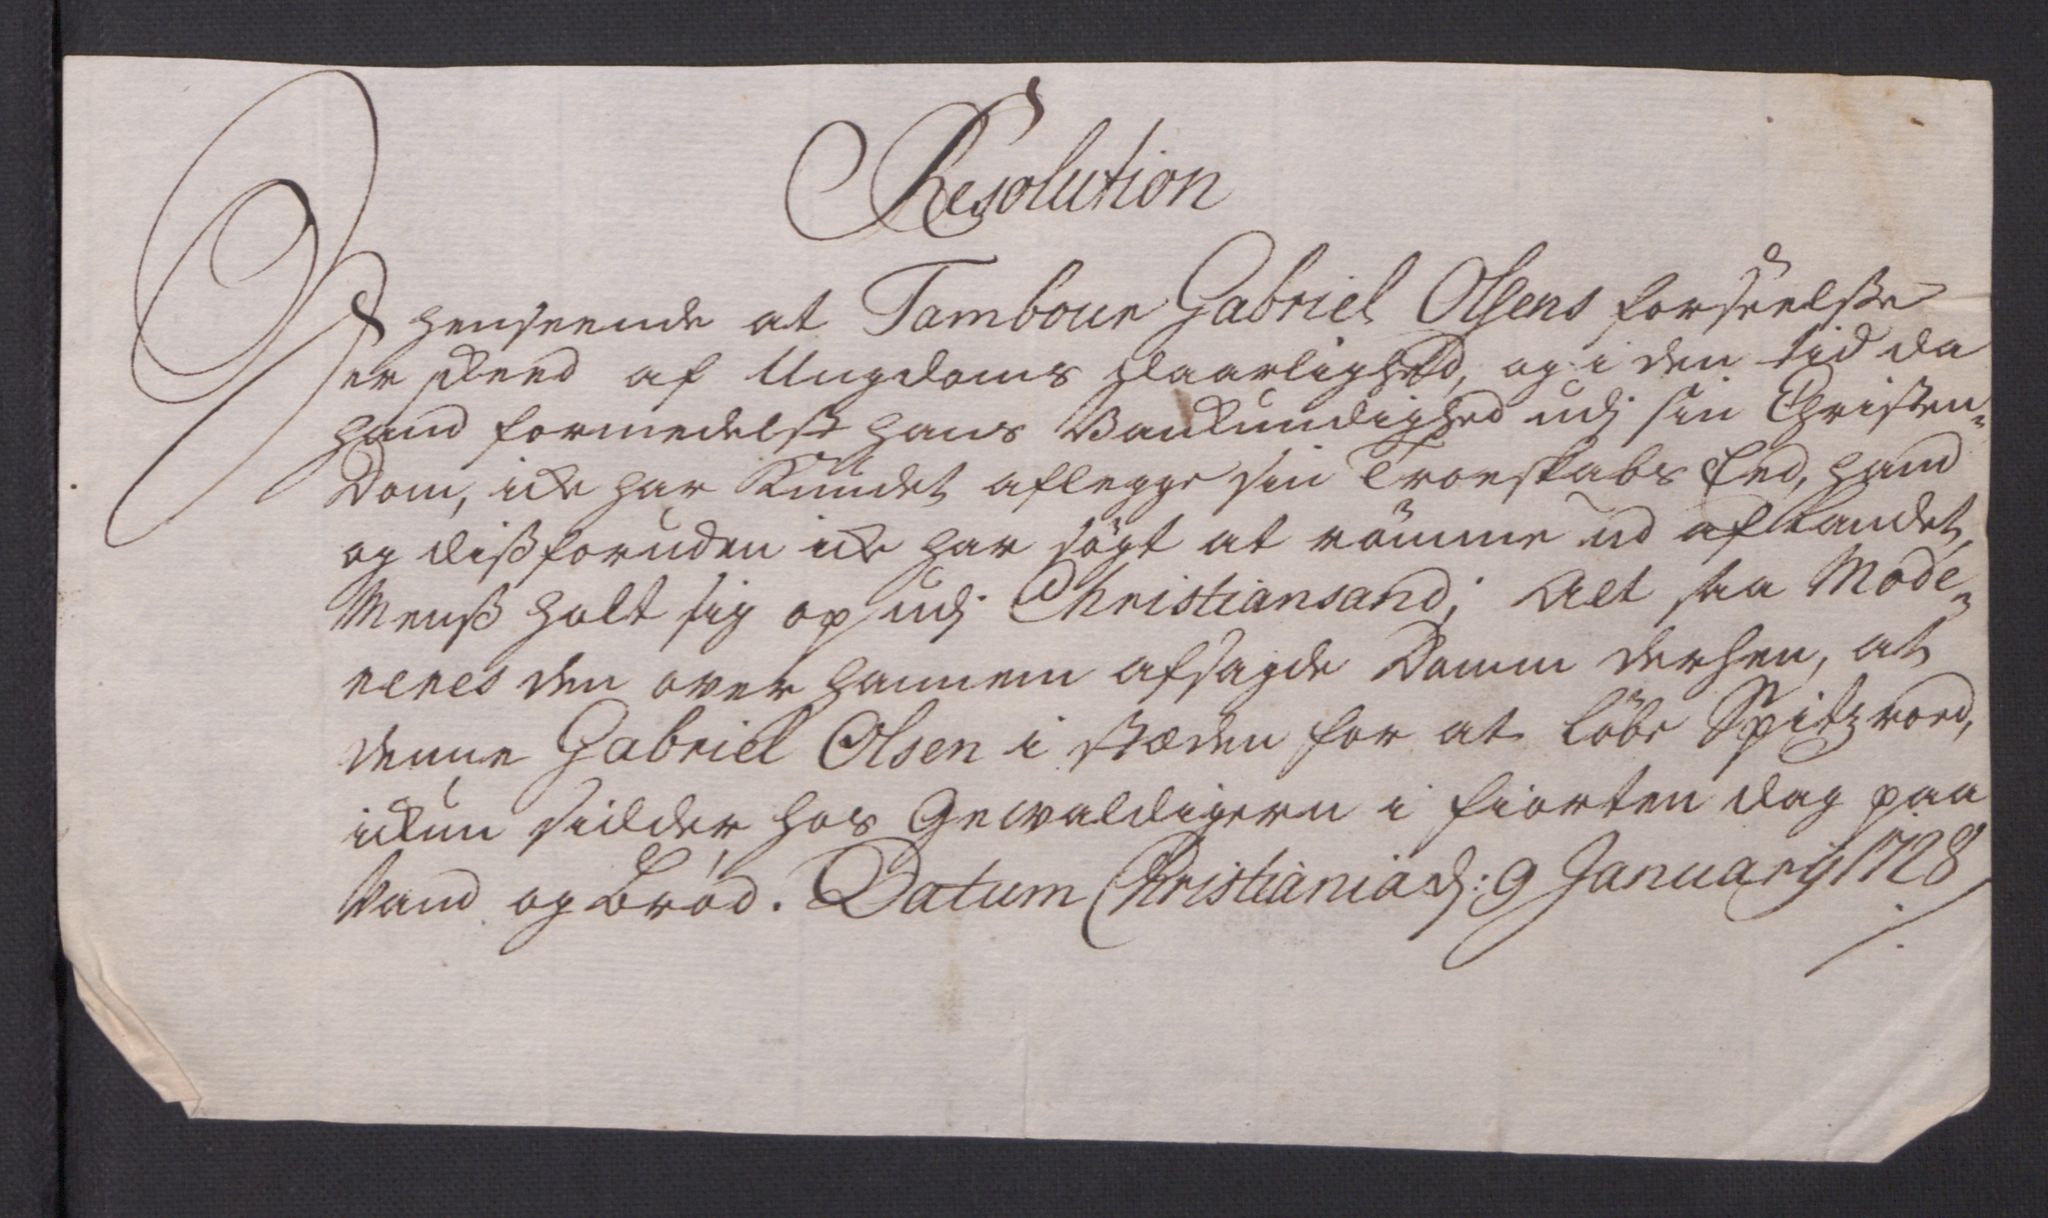 Resolution
I henseende at Tambour Gabriel Olsens forseelsse
er skeed af Ungdoms Daarlighed, og i den tid da
hand formedelst hans Vankundighed udj sin Christen-
Dom, icke har Kundet aflegge sin Troeskabs Eed, hand
og dissforuden icke har søgt at rømme ud af landet,
Menss holt sig op udj Christiansand; Alt saa Mode-
reres den over hannem afsagde Domm derhen, at
denne Gabriel Olsen i stæden for at løbe Spitzroed,
ickun sidder hos Gewaldigern i fiorten dag paa
Vand og Brød. Datum Christiania d: 9 Januarij 1728